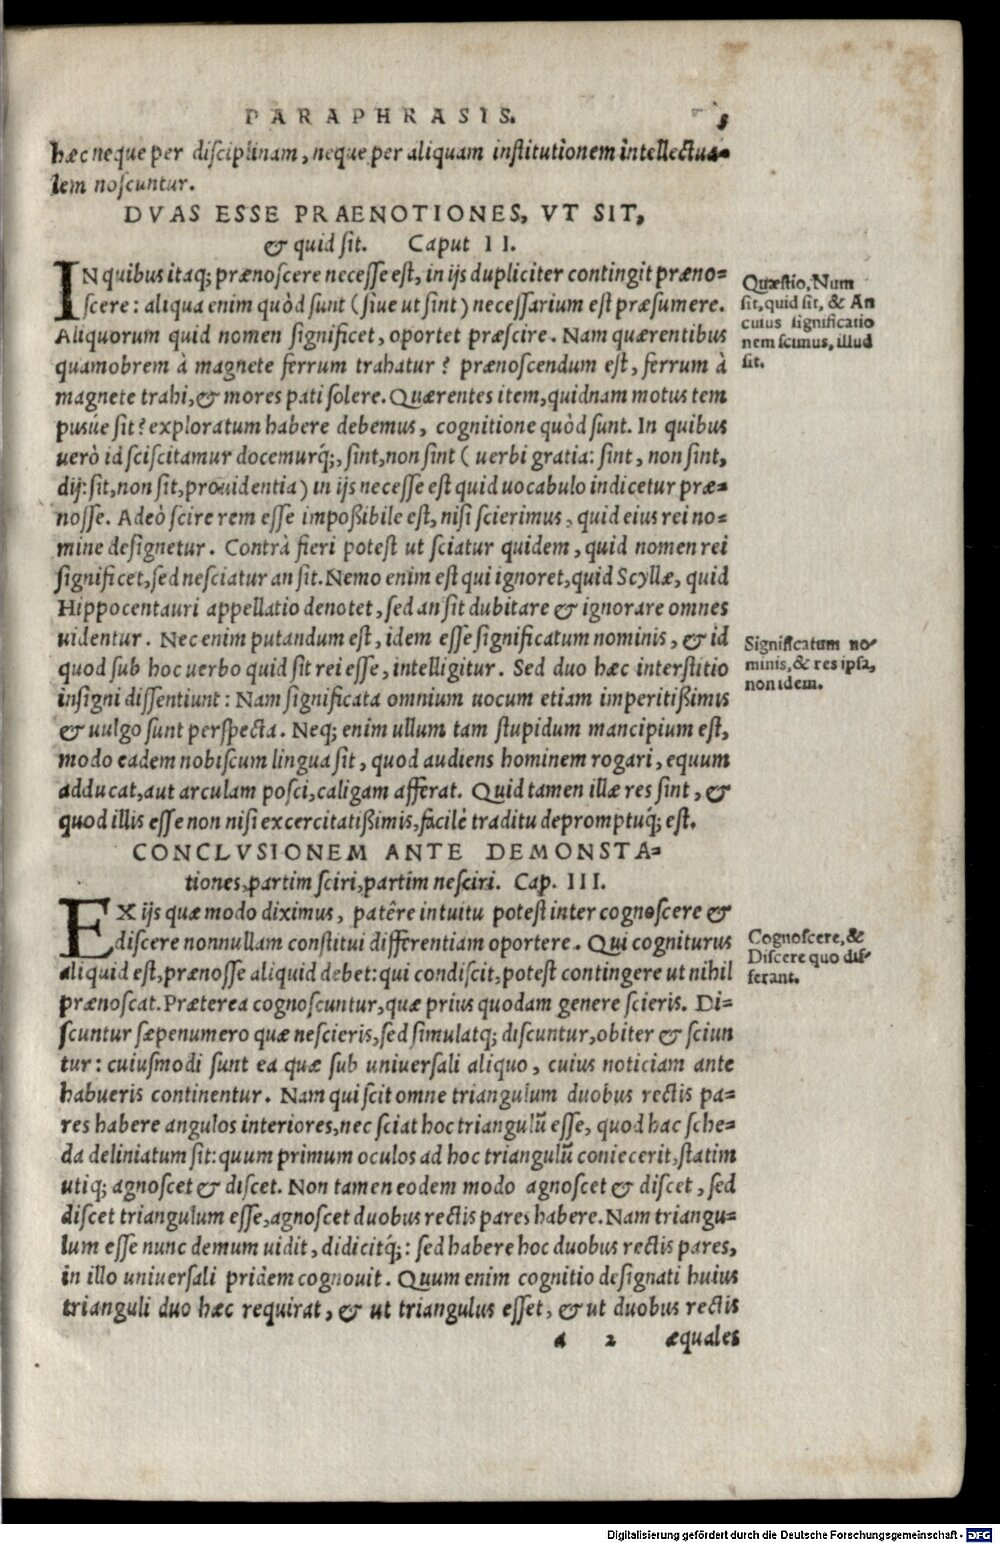 PARAPHRASIS. 3
hæc neque per disciplinam, neque per aliquam institutionem intellectua-
lem noscuntur.
DVAS ESSE PRAENOTIONES, VT SIT,
& quid sit. Caput II.
IN quibus itaq; prænoscere necesse est, in ijs dupliciter contingit præno-
scere: aliqua enim quòd sunt (siue ut sint) necessarium est præsumere.
Aliquorum quid nomen significet, oportet præscire. Nam quærentibus
quamobrem à magnete ferrum trahatur? prænoscendum est, ferrum à
magnete trahi, & mores pati solere. Quærentes item, quidnam motus tem
pusúe sit? exploratum habere debemus, cognitione quòd sunt. In quibus
uerò id sciscitamur docemurq́;, sint, non sint (uerbi gratia: sint, non sint,
dij: sit, non sit, prouidentia) in ijs necesse est quid uocabulo indicetur præ-
nosse. Adeò scire rem esse impoßibile est, nisi scierimus, quid eius rei no-
mine designetur. Contrà fieri potest ut sciatur quidem, quid nomen rei
significet, sed nesciatur an sit. Nemo enim est qui ignoret, quid Scyllæ, quid
Hippocentauri appellatio denotet, sed an sit dubitare & ignorare omnes
uidentur. Nec enim putandum est, idem esse significatum nominis, & id
quod sub hoc uerbo quid sit rei esse, intelligitur. Sed duo hæc interstitio
insigni dissentiunt: Nam significata omnium uocum etiam imperitißimis
& uulgo sunt perspecta. Neq; enim ullum tam stupidum mancipium est,
modo eadem nobiscum lingua sit, quod audiens hominem rogari, equum
adducat, aut arculam posci, caligam afferat. Quid tamen illæ res sint, &
quod illis esse non nisi excercitatißimis, facilè traditu depromptuq́; est.
CONCLVSIONEM ANTE DEMONSTA-
tiones, partim sciri, partim nesciri. Cap. III.
EX ijs quæ modo diximus, patêre intuitu potest inter cognoscere &
discere nonnullam constitui differentiam oportere. Qui cogniturus
aliquid est, prænosse aliquid debet: qui condiscit, potest contingere ut nihil
prænoscat. Præterea cognoscuntur, quæ prius quodam genere scieris. Di-
scuntur sæpenumero quæ nescieris, sed simulatq; discuntur, obiter & sciun
tur: cuiusmodi sunt ea quæ sub uniuersali aliquo, cuius noticiam ante
habueris continentur. Nam qui scit omne triangulum duobus rectis pa-
res habere angulos interiores, nec sciat hoc triangulũ esse, quod hac sche-
da deliniatum sit: quum primum oculos ad hoc triangulũ coniecerit, statim
utiq; agnoscet & discet. Non tamen eodem modo agnoscet & discet, sed
discet triangulum esse, agnoscet duobus rectis pares habere. Nam triangu-
lum esse nunc demum uidit, didicitq́;: sed habere hoc duobus rectis pares,
in illo uniuersali pridem cognouit. Quum enim cognitio designati huius
trianguli duo hæc requirat, & ut triangulus esset, & ut duobus rectis
a 2 æquales
Quæstio, Num
sit, quid sit, & An
cuius significatio
nem scimus, illud
sit.
Significatum no-
minis, & res ipsa,
non idem.
Cognoscere, &
Discere quo dif-
ferant.
Digitalisierung gefördert durch die Deutsche Forschungsgemeinschaft - DFG